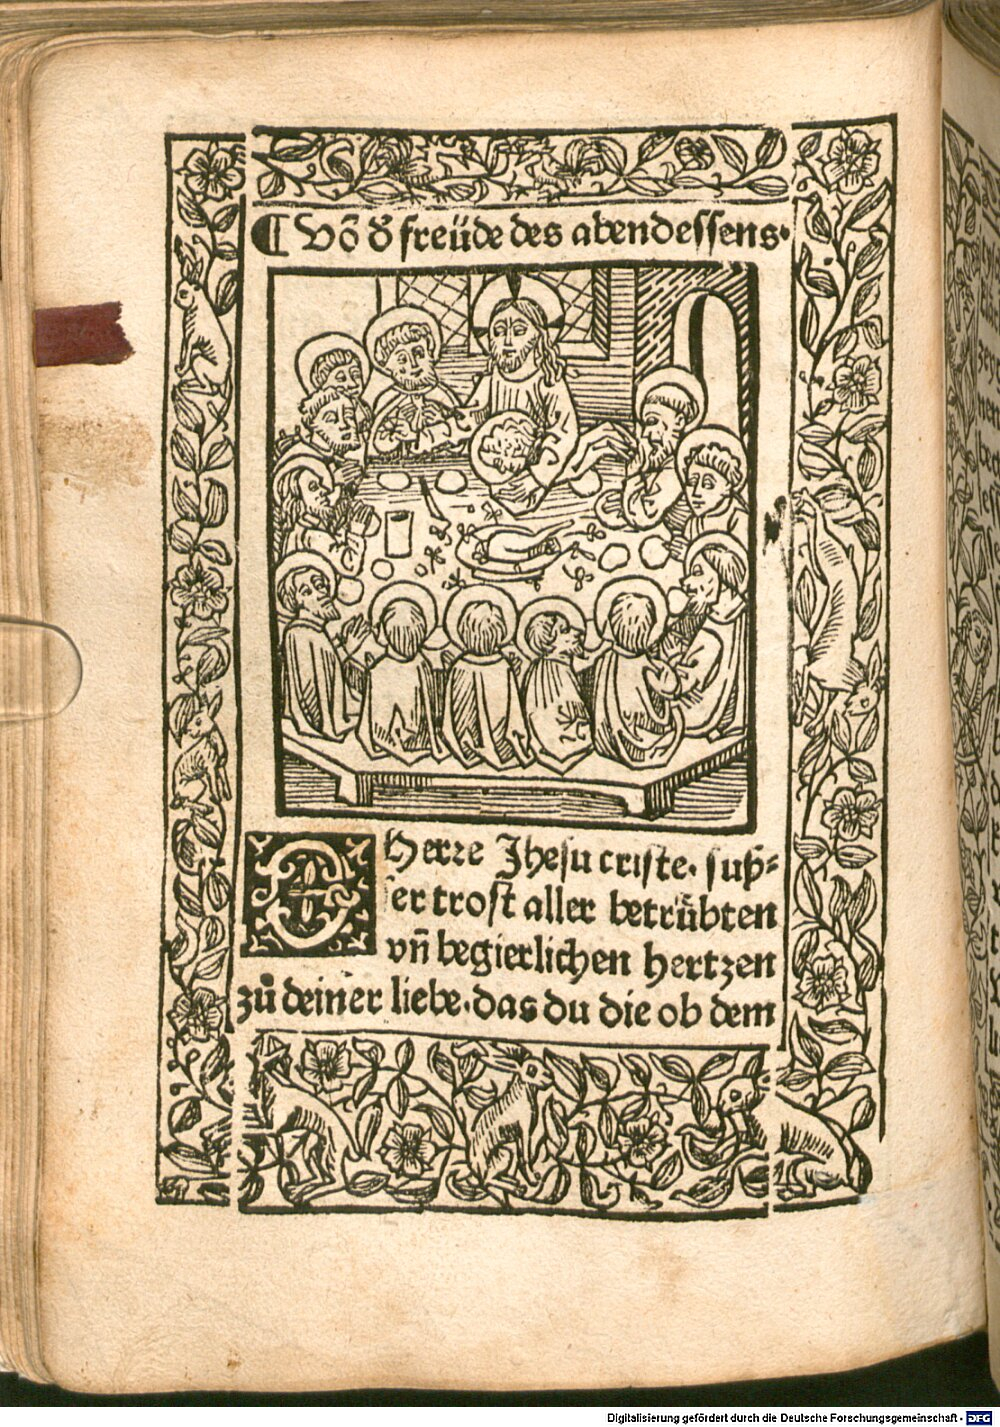 ¶ Võ d̕ freüde des abendessens.
O Herre Jhesu criste. suß⸗
er trost aller betrůbten
vñ begierlichen hertzen
zů deiner liebe. das du die ob dem
Digitalisierung gefördert durch die Deutsche Forschungsgemeinschaft - DFG